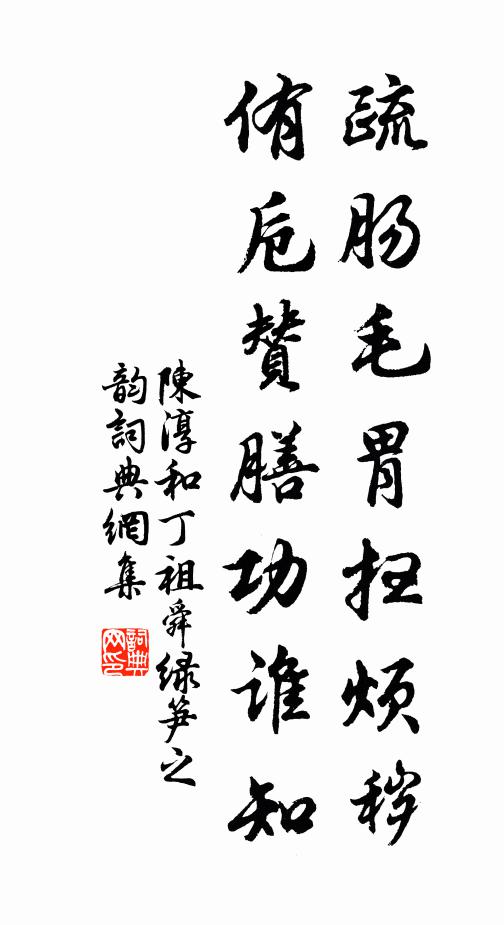 疏肠毛胃扫烦秽
侑卮赞膳功谁知
陳淳和丁祖舜緑笋之
韵詞典網集
詞典网印